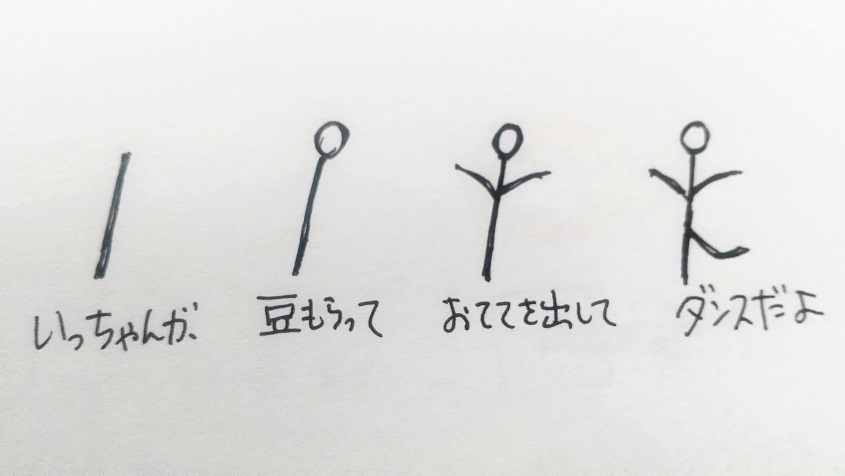 いっちゃんが、 豆もらって おててを出して ダンスだよ